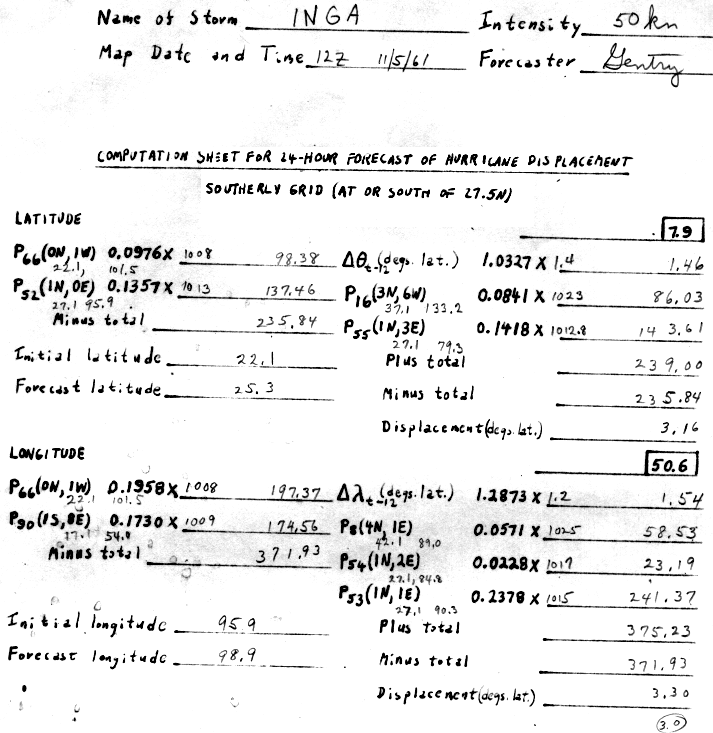 Name of Storm INGA Intensity 50kn
Map Date and Time 12Z 11/5/61 Forecaster Gentry
COMPUTATION SHEET FOR 24-HOUR FORECAST OF HURRICANE DISPLACEMENT
SOUTHERLY GRID (AT OR SOUTH OF 27.5N)
LATITUDE
7.9
P66(0N, 1W) 0.0976 X 1008 98.38 Δθt-12 (degs. lat.) 1.0327 X 1.4 1.46
22.1, 101.5
P52(1N, 0E) 0.1357 X 1013 137.46 P16(3N, 6W) 0.0841 X 1023 86.03
27.1 95.9 37.1 133.2
Minus total 235.84 P55(1N, 3E) 0.1418 X 1012.8 143.61
27.1 79.3
Initial latitude 22.1 Plus total 239.00
Forecast latitude 25.3 Minus total 235.84
Displacement (degs. lat.) 3.16
LONGITUDE
50.6
P66(0N, 1W) 0.1958 X 1008 197.37 Δλt-12 (degs. lat.) 1.2873 X 1.2 1.54
22.1 101.5
P90(1S, 8E) 0.1730 X 1009 174.56 P8(4N, 1E) 0.0571 X 1025 58.53
17.1 54.8 42.1 89.0
Minus total 371.93 P54(1N, 2E) 0.0228 X 1017 23.19
27.1, 84.8
P53(1N, 1E) 0.2378 X 1015 241.37
27.1 90.3
Initial longitude 95.9 Plus Total 375.23
Forecast longitude 98.9 Minus total 371.93
Displacement (degs. lat.) 3.30
3.0